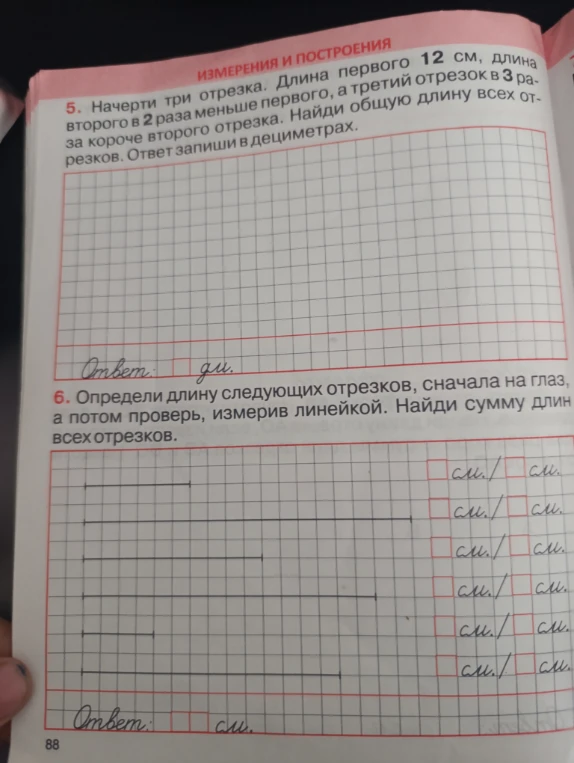 ИЗМЕРЕНИЯ И ПОСТРОЕНИЯ
5. Начерти три отрезка. Длина первого 12 см, длина
второго в 2 раза меньше первого, а третий отрезок в 3 ра-
за короче второго отрезка. Найди общую длину всех от-
резков. Ответ запиши в дециметрах.
Ответ: дм.
6. Определи длину следующих отрезков, сначала на глаз,
а потом проверь, измерив линейкой. Найди сумму длин
всех отрезков.
см. / см.
см. / см.
см. / см.
см. / см.
см. / см.
см. / см.
Ответ: см.
88